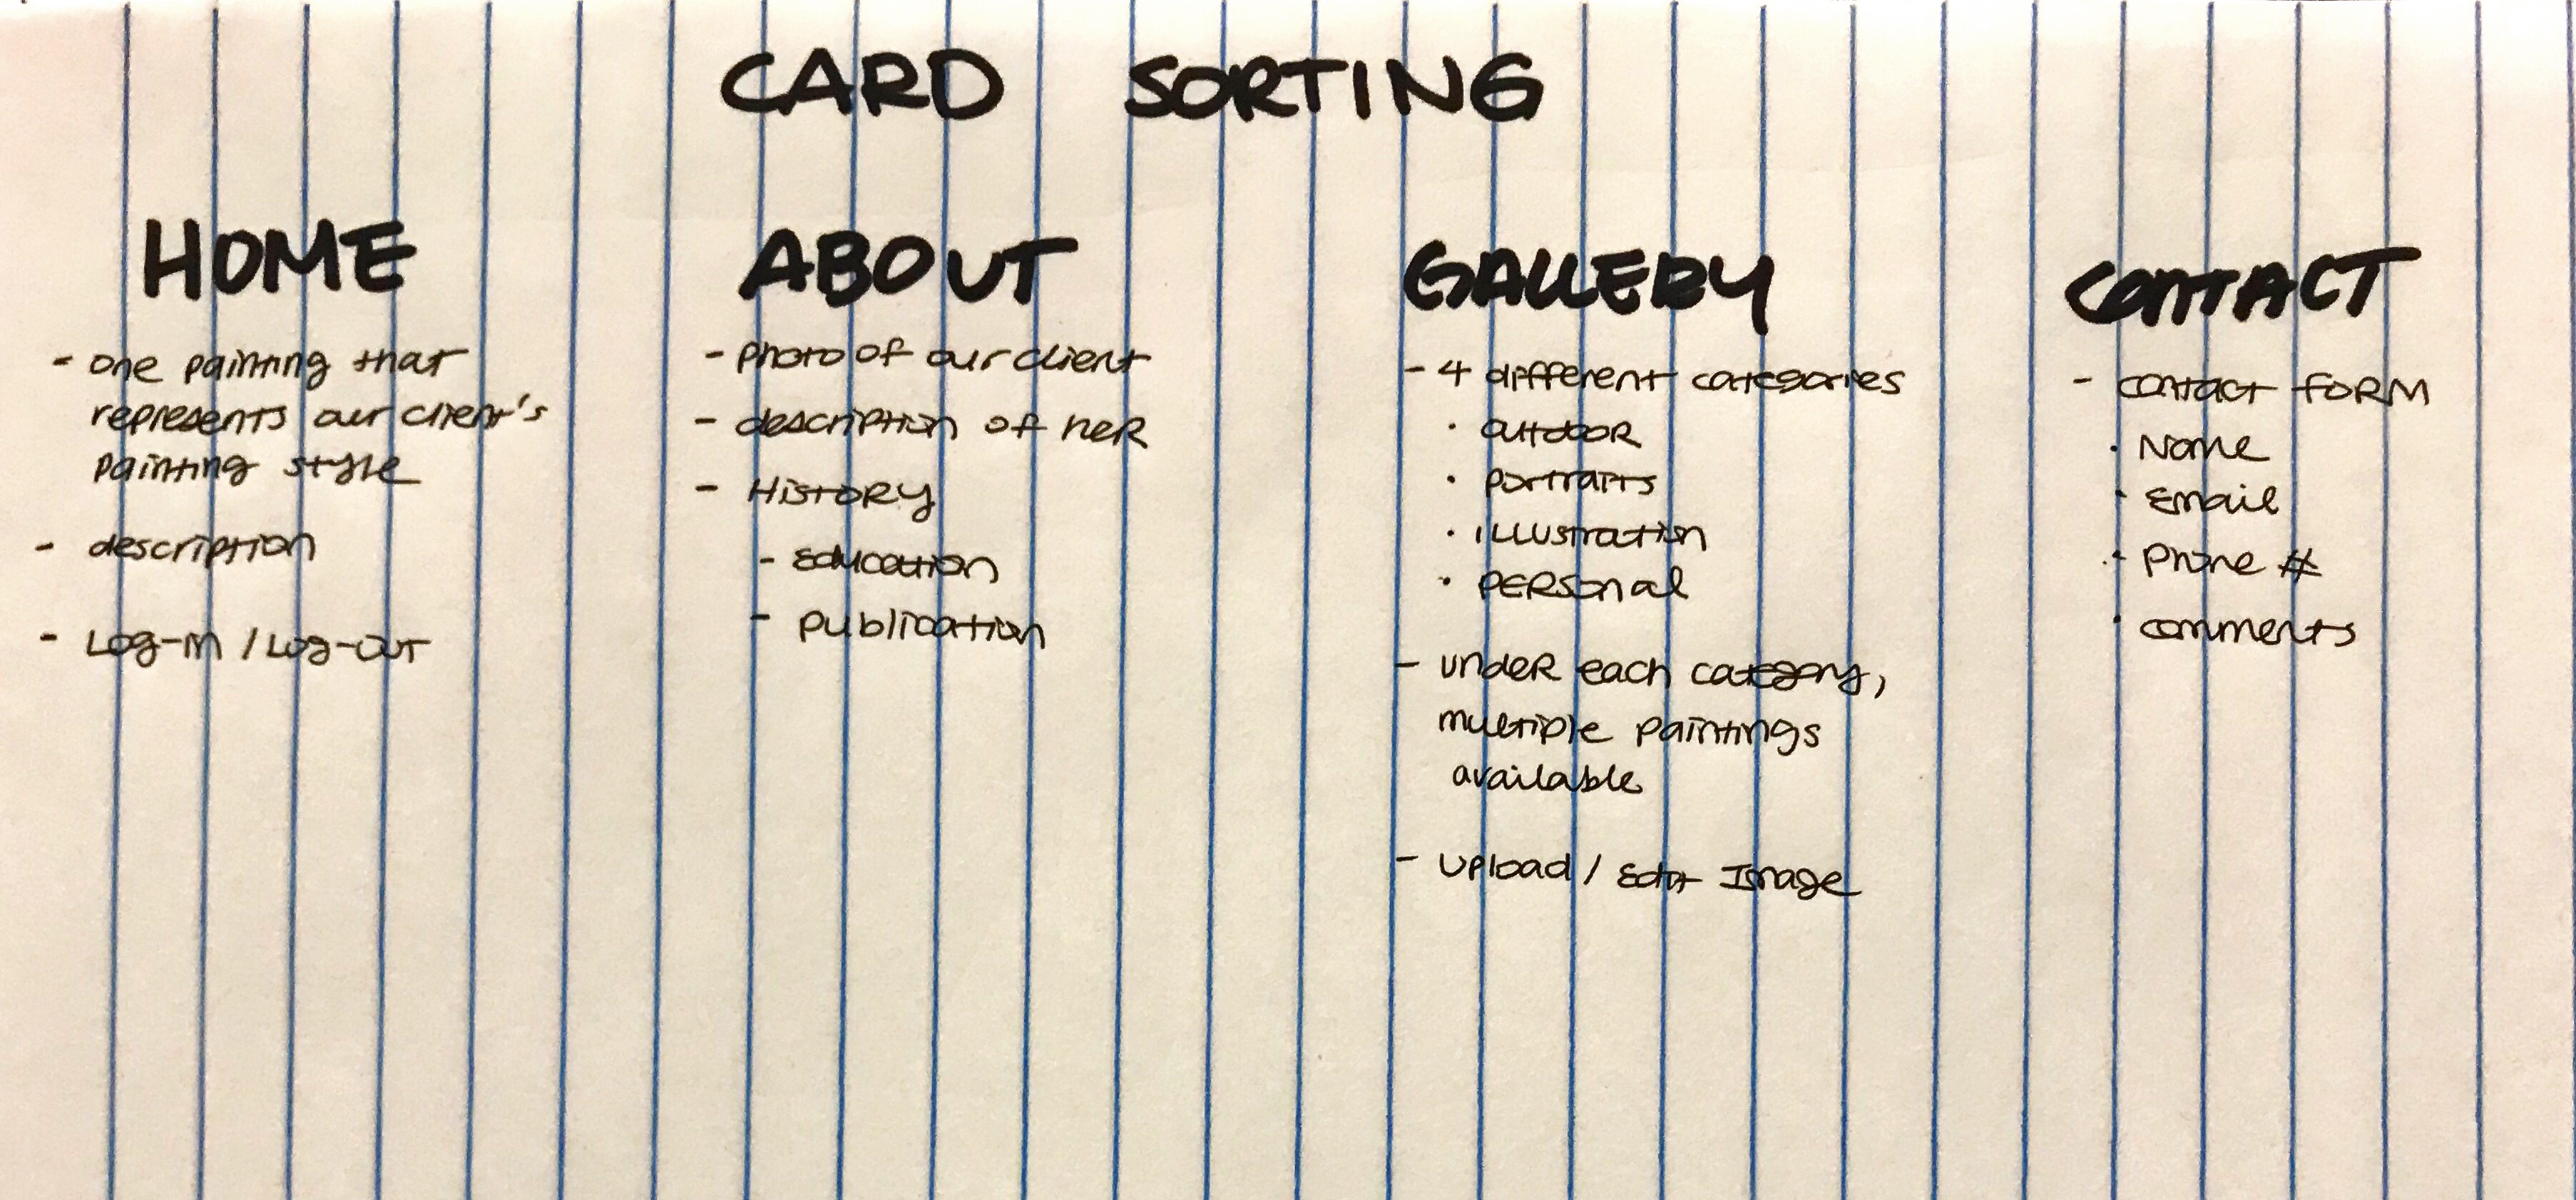 CARD SORTING
HOME
- one painting that
represents our client's
painting style
- description
- LOG-IN / LOG-OUT
ABOUT
- photo of our client
- description of heR
- HISTORY
- Education
- publication
GALLERY
- 4 different categories
· outdooR
· portraits
· ILLUStration
· PERSonal
- undeR each category,
multiple paintings
available
- Upload / Edit Image
CONTACT
- contact FORM
· Name
· Email
· Phone #
· comments